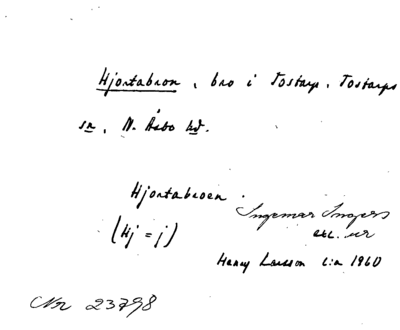 Hjortabron, bro i Tostarp, Tostarps
sn, N. Åsbo hd.
Hjortabroen.
(Hj = j)
Ingemar Ingers
exc. ur
Henry Larsson c:a 1960
Nr 23798